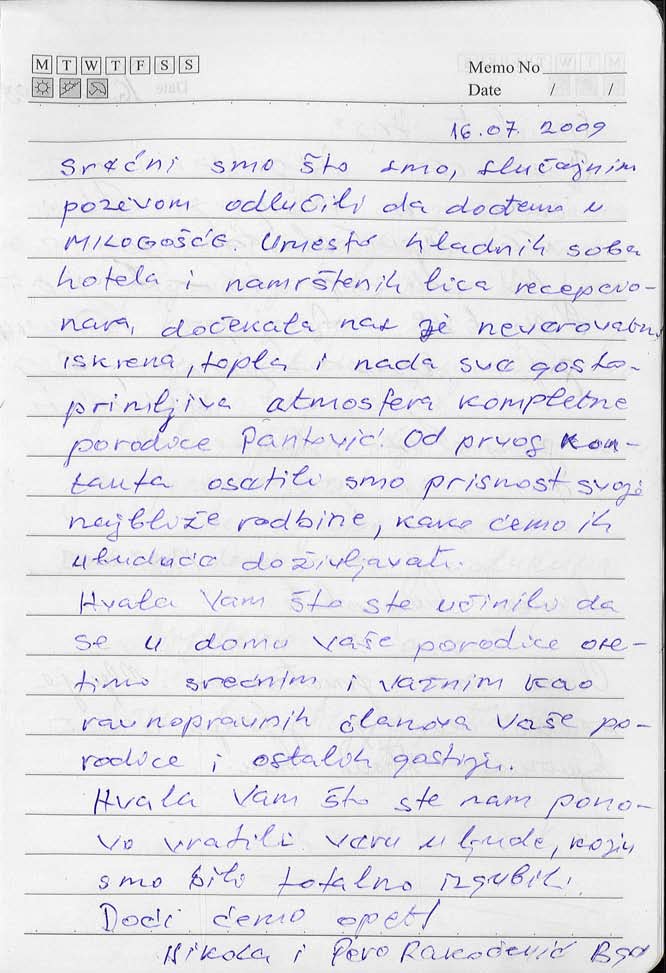 M T W T F S S
Memo No
Date / /
16.07.2009
srećni smo što smo, slučajnim
pozivom odlučili da dođemo u
MILOGOŠĆE. Umesto hladnih soba
hotela i namrštenih lica recepcio-
nara, dočekala nas je neverovatno
iskrena, topla i nada sve gosto-
primljiva atmosfera kompletne
porodice Pantović. Od prvog kon-
takta osetili smo prisnost svoje
najbliže rodbine, kako ćemo ih
ubuduće doživljavati.
Hvala Vam što ste učinili da
se u domu vaše porodice ose-
timo srećnim i važnim kao
ravnopravnih članova vaše po-
rodice i ostalih gostiju.
Hvala Vam što ste nam pono-
vo vratili veru u ljude, koju
smo bili totalno izgubili.
Doći ćemo opet!
Nikola i Pero Rakočević Bgd